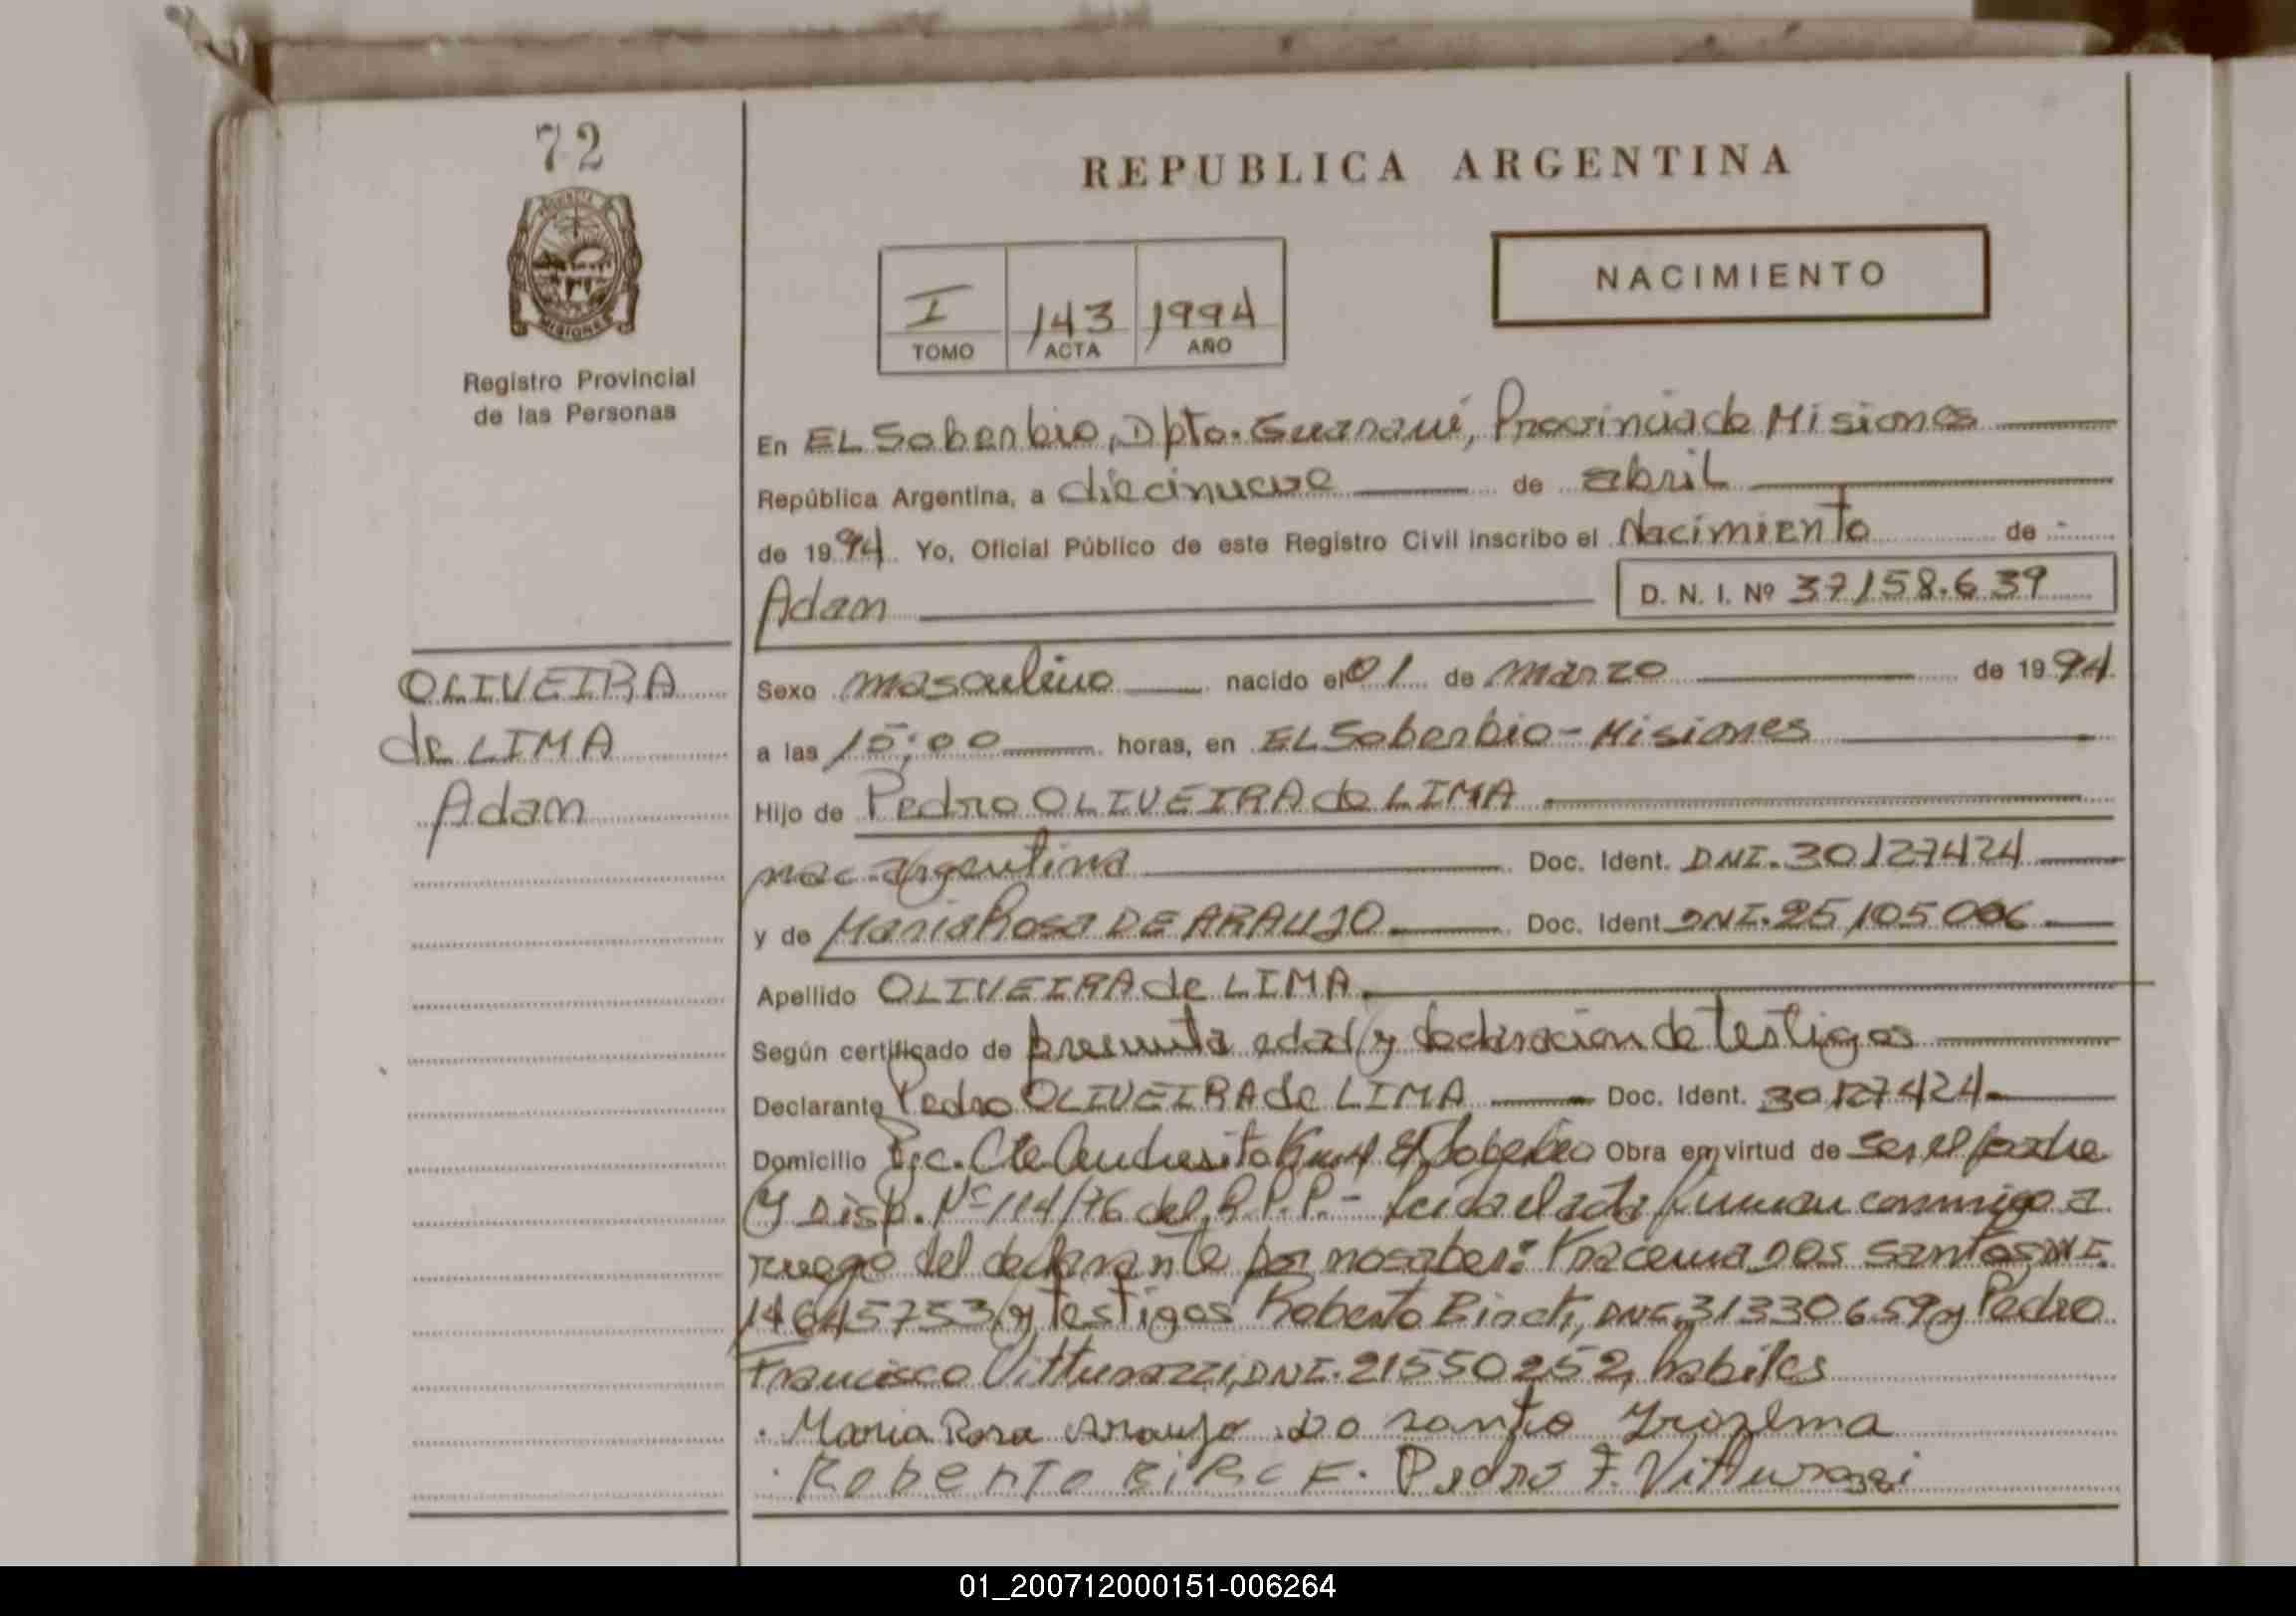 72
REPUBLICA ARGENTINA
NACIMIENTO
I 143 1994
TOMO ACTA AÑO
Registro Provincial
de las Personas
En EL Soberbio, Dpto. Guaraní, Provincia de Misiones
República Argentina, a diecinueve de abril
de 1994. Yo, Oficial Público de este Registro Civil inscribo el Nacimiento de
Adam D. N. I. Nº 37158.639
OLIVEIRA
de LIMA
Adam
Sexo masculino nacido el 01 de marzo de 1994
a las 15:00 horas, en EL Soberbio - Misiones
Hijo de Pedro OLIVEIRA de LIMA
nac. argentina Doc. Ident. DNI. 30127424
y de Maria Rosa DE ARAUJO Doc. Ident. DNI. 25105006
Apellido OLIVEIRA de LIMA
Según certificado de presunta edad y declaración de testigos
Declarante Pedro OLIVEIRA de LIMA Doc. Ident. 30127424
Domicilio Pje. Cte Andresito El Soberbio Obra en virtud de ser el padre
y Disp. Nº 114/76 del R.P.P.- Leida el acta firman conmigo a
ruego del declarante por no saber: dos Santos DNI.
14645753 y testigos Roberto DNI. 31330659 y Pedro
Francisco Vitturazzi, DNI. 21550252, habiles
Maria Rosa Araujo Do santo
Roberto Pedro F. Vitturazzi
01_200712000151-006264